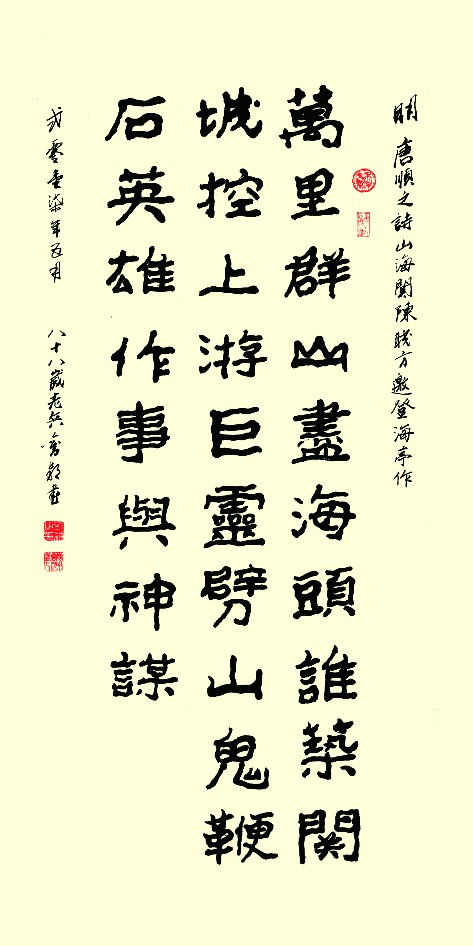 明 唐順之詩山海關陳職方邀登海亭作
萬里群山盡海頭誰築關
城控上游巨靈劈山鬼鞭
石英雄作事與神謀
弍零壹柒年五月 八十八歲老兵